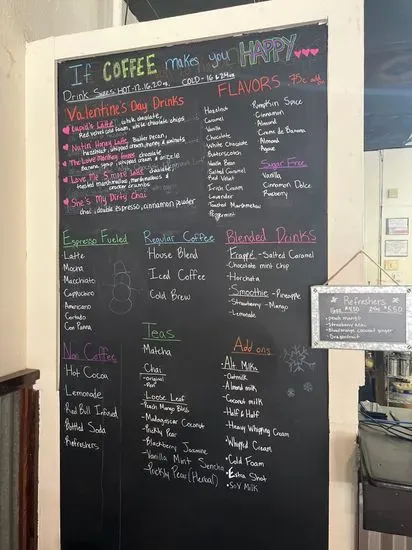 If COFFEE makes you HAPPY
Drink Sizes: HOT - 12, 16, 20 oz. COLD - 16 & 24 oz
Valentine's Day Drinks
Cupid's Latte: white chocolate,
Red velvet cold foam, white chocolate chips
Nutin Honey Latte: Butter Pecan,
hazelnut, whipped cream, honey & walnuts
The Love Monkey Mocha: chocolate
Banana syrup, whipped cream & drizzle
Love Me S'more Latte: chocolate,
toasted marshmallow, marshmallows &
graham crumbs
She's My Dirty Chai
chai, double espresso, cinnamon powder
FLAVORS 75¢ add on
Hazelnut
Caramel
Vanilla
Chocolate
White Chocolate
Butterscotch
Vanilla Bean
Salted Caramel
Red Velvet
Irish Cream
Lavender
Toasted Marshmallow
Peppermint
Pumpkin Spice
Cinnamon
Almond
Creme de Banana
Almond
Agave
Sugar Free
Vanilla
Cinnamon Dolce
Raspberry
Espresso Fueled
Latte
Mocha
Macchiato
Cappuccino
Americano
Cortado
Con Panna
Regular Coffee
House Blend
Iced Coffee
Cold Brew
Blended Drinks
Frappé - Salted Caramel
- Chocolate mint Chip
- Horchata
Smoothie - Pineapple
- Strawberry - Mango
- Lemonade
Refreshers
16oz $4.50 24oz $5.50
- peach mango
- Strawberry Acai
- Blood orange coconut ginger
- Dragonfruit
Non Coffee
Hot Cocoa
Lemonade
Red Bull Infused
Bottled Soda
Refreshers
Teas
Matcha
Chai
- original
- Loose Leaf
- Peach Mango Bliss
- Madagascar Coconut
- Prickly Pear
- Blackberry Jasmine
- Vanilla Mint Sencha
- Prickly Pear (Herbal)
Add ons
• Alt Milks
- Oatmilk
- Almond milk
- Coconut milk
• Half & Half
• Heavy Whipping Cream
• Whipped Cream
• Cold Foam
• Extra Shot
• Soy Milk